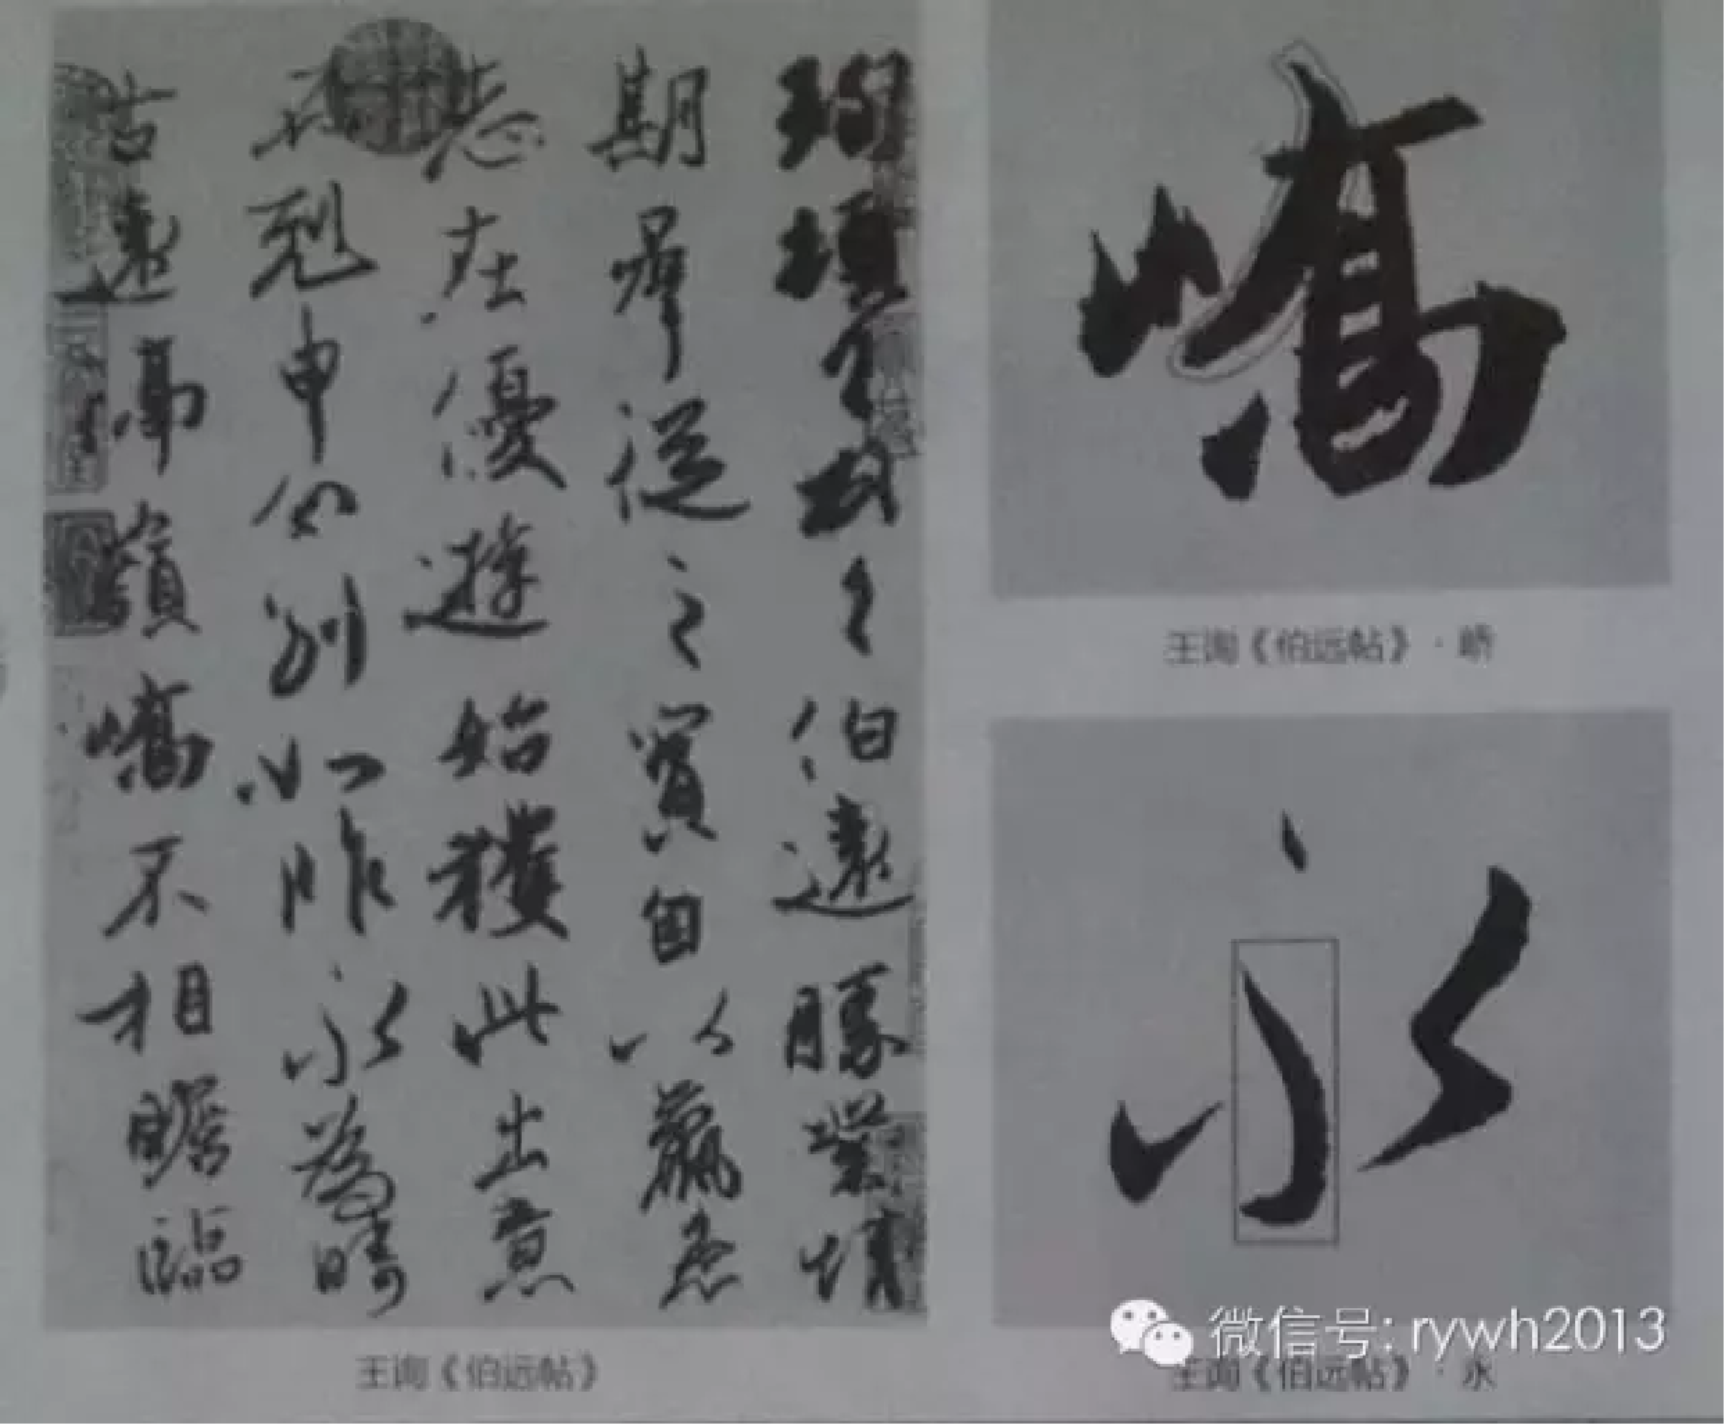 珣頓首頓首伯遠勝業情
期羣從之寶自以羸患
志在優遊始獲此出意
不剋申分别如昨永為疇
古遠隔嶺嶠不相瞻臨
王询《伯远帖》
嶠
王询《伯远帖》·峤
永
王询《伯远帖》·永
微信号: rywh2013